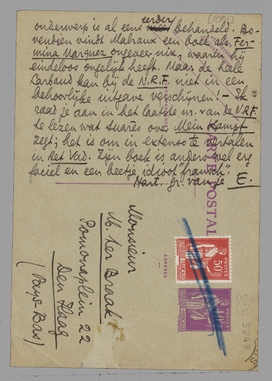 eerder
onderwerp is al eens behandeld. Bo-
vendien vindt Malraux een boek als Fer-
mina Marquez ongeveer nix, waarin hij
eindeloos ongelijk heeft. Maar de Kale
Karband kan bij de N.R.F. niet in een
behoorlijke uitgave verschijnen! – Ik
raad je aan in het laatste nr. van de N.R.F.
te lezen wat Suarès over Mein Kampf
zegt; het is om in extenso te vertalen
in Het Vad. Zijn boek is anders wel erg
faciel en een beetje idioot "fransch".
Hart. gr. van de E.
CARTE POSTALE
ADRESSE
Monsieur
M. ter Braak
Pomonaplein 22
Den Haag
(Pays Bas)
POSTES
50c